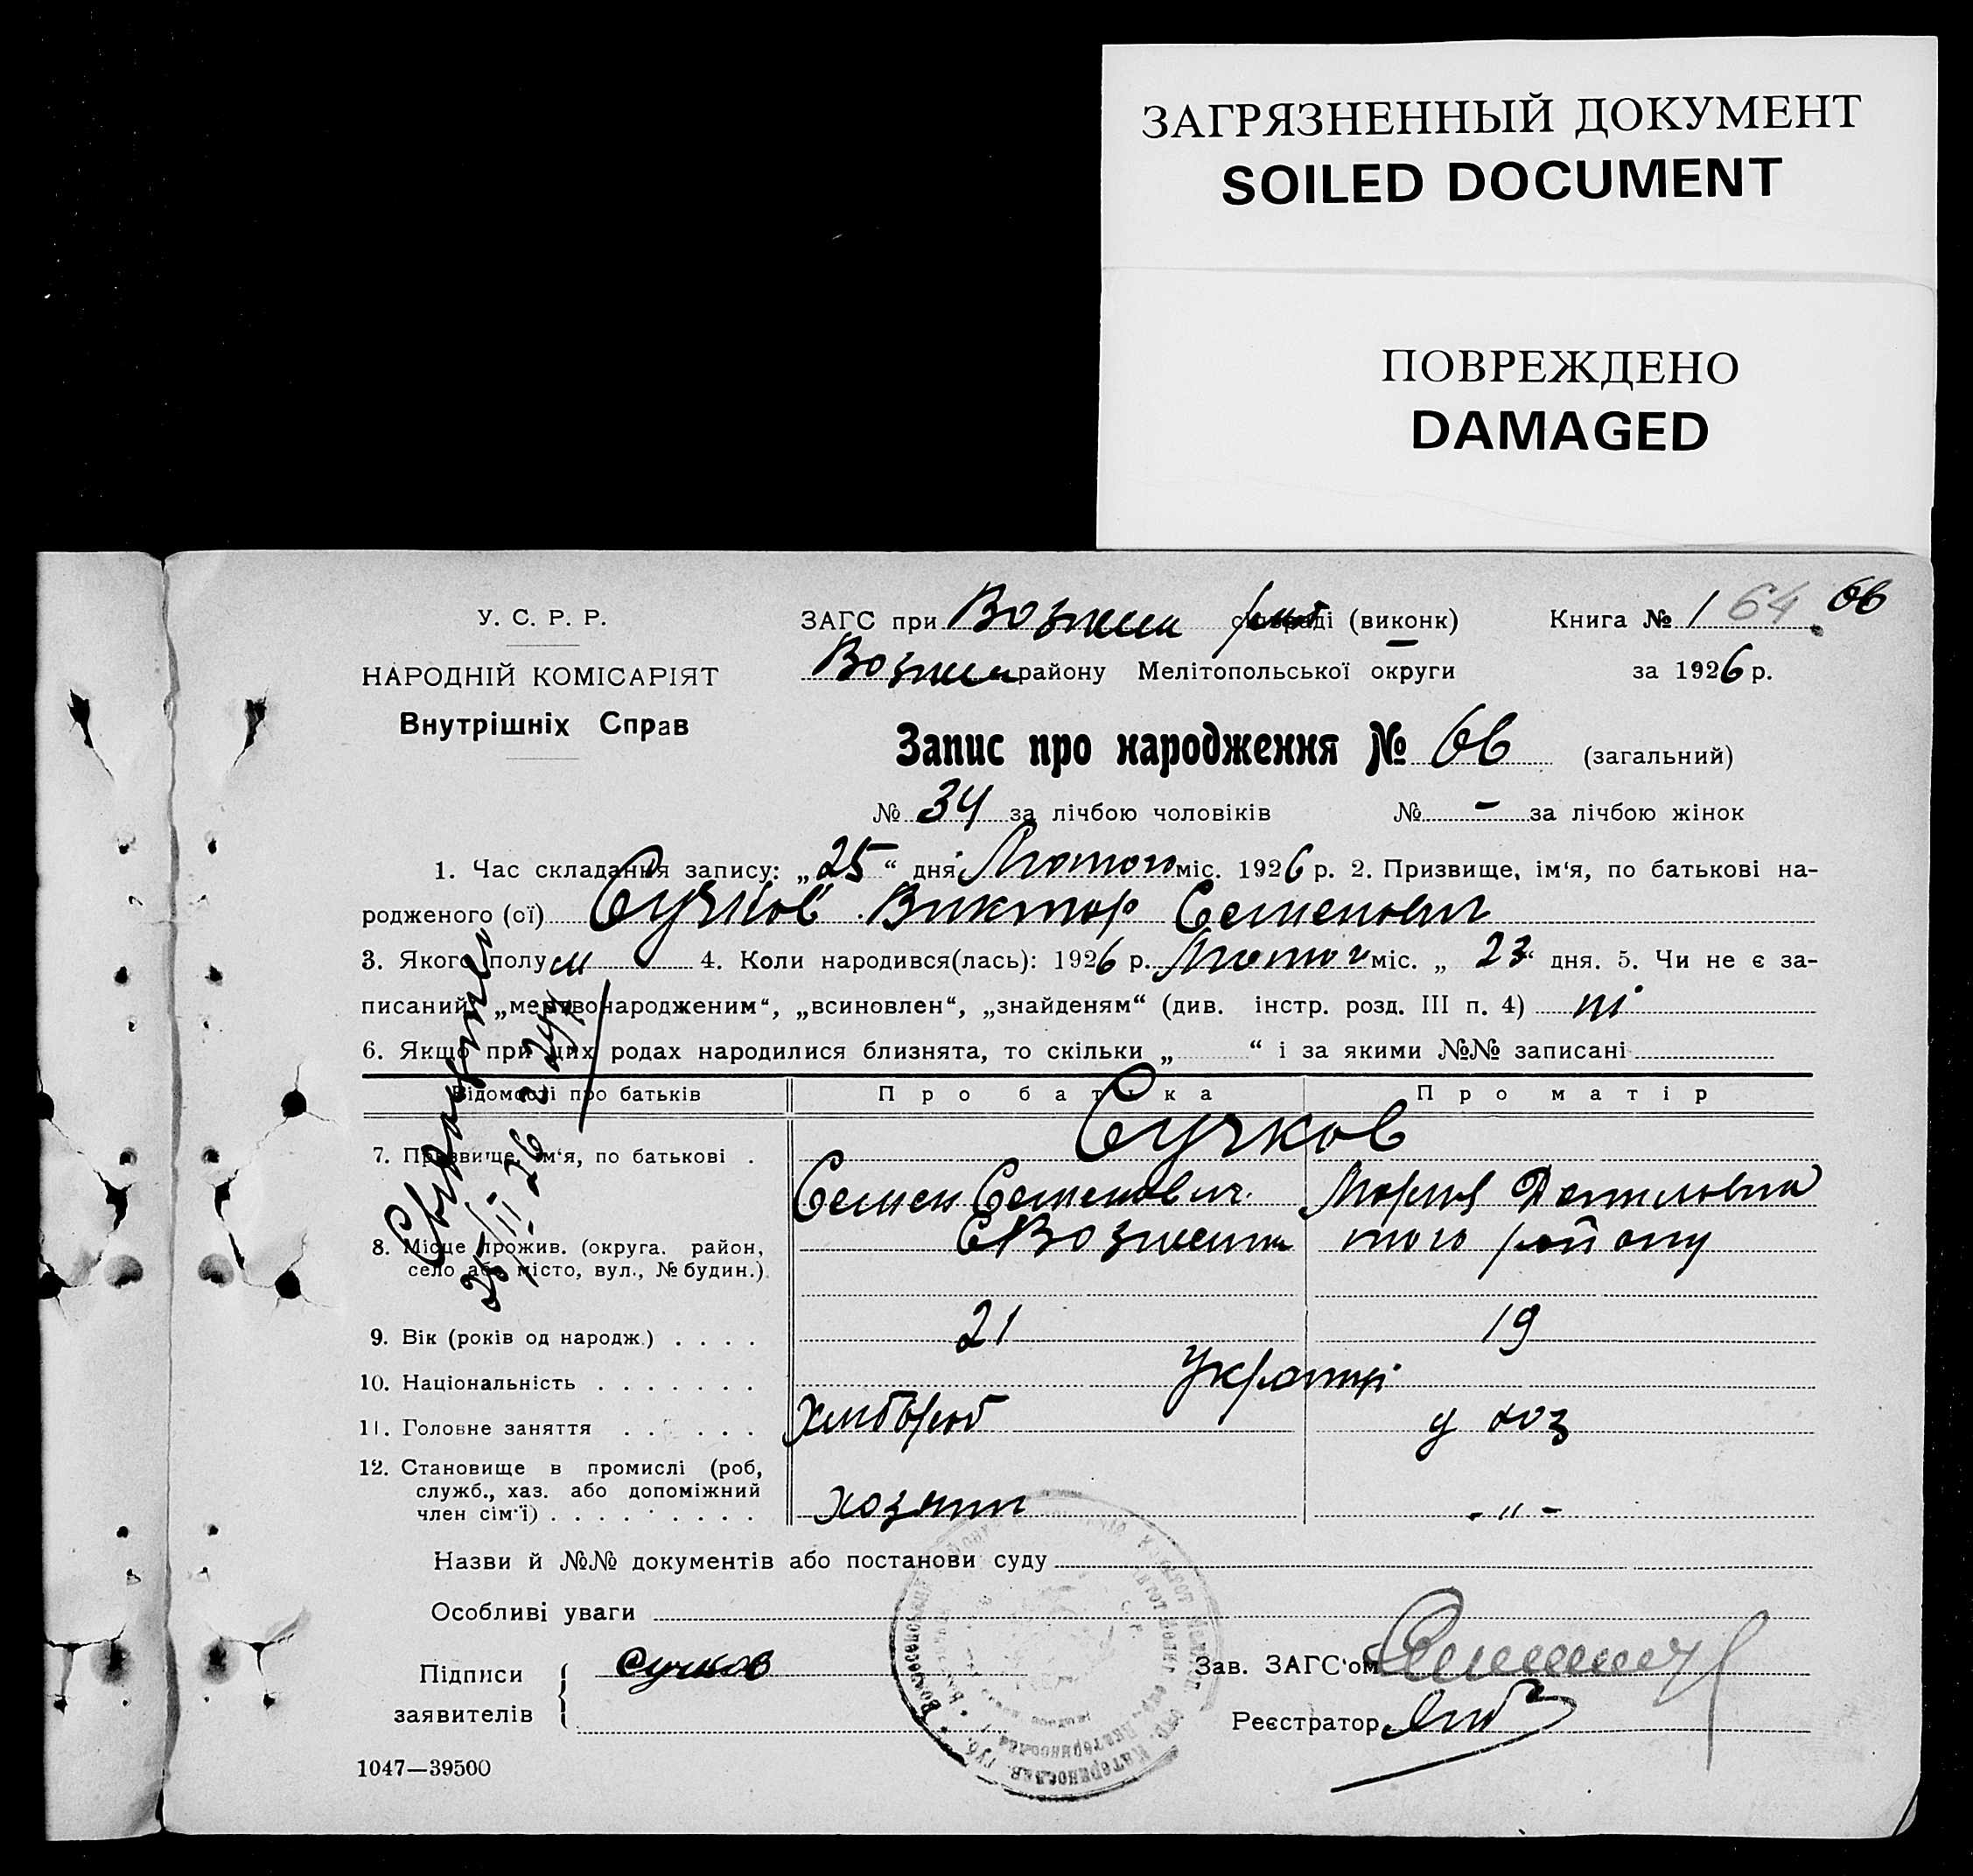 ЗАГРЯЗНЕННЫЙ ДОКУМЕНТ
SOILED DOCUMENT
ПОВРЕЖДЕНО
DAMAGED
У. С. Р. Р.
НАРОДНІЙ КОМІСАРІЯТ
Внутрішніх Справ
ЗАГС при Вознесен (виконк)
Книга № 1 64 66
Вознесен району Мелітопольської округи
за 1926 р.
Запис про народження № 66 (загальний)
№ 34 за лічбою чоловіків № - за лічбою жінок
1. Час складання запису: „25“ дня Лютого міс. 1926 р. 2. Призвище, ім‘я, по батькові на-
родженого (ої) Сучков Виктор Семенович
3. Якого полу м 4. Коли народився(лась): 1926 р. Лютого міс. „ 23“ дня. 5. Чи не є за-
писаний „мертвонародженим“, „всиновлен“, „знайденям“ (див. інстр. розд. III п. 4) ні
6. Якщо при цих родах народилися близнята, то скільки „ “ і за якими №№ записані
Відомості про батьків Про батька Про матір
Сучков
7. Призвище, ім‘я, по батькові .
Семен Семенович Мария
8. Місце прожив. (округа. район,
село або місто, вул., № будин.)
с Вознесенк того району
9. Вік (років од народж.) . . . . 21 19
10. Національність . . . . . . . Українці
11. Головне заняття . . . . . . Хлібороб у хоз
12. Становище в промислі (роб,
служб., хаз. або допоміжний
член сім‘ї) . . . . . . . . . хозяин - " -
Назви й №№ документів або постанови суду
Особливі уваги
Підписи
заявителів
Сучков
Зав. ЗАГС‘ом
Реєстратор
1047—39500
25/II 26